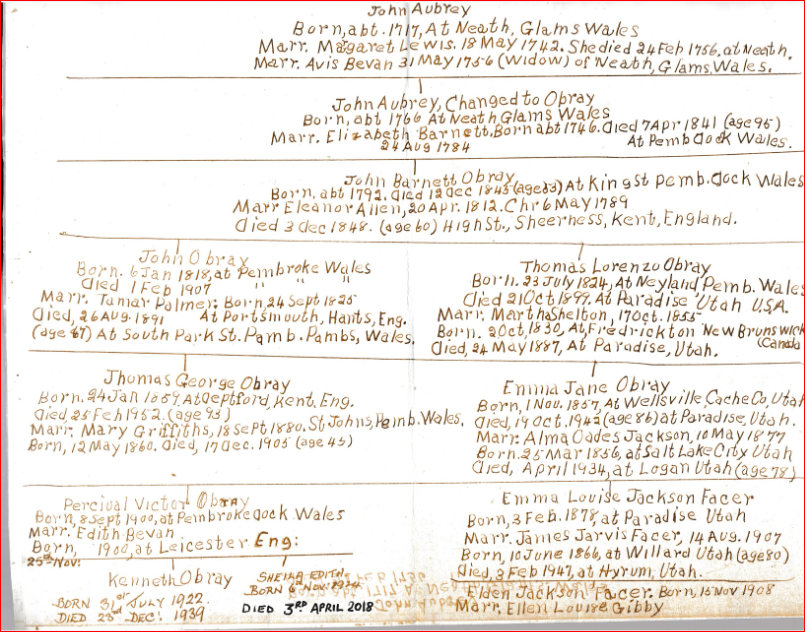 John Aubrey
Born, abt. 1717, At Neath, Glams Wales
Marr. Magaret Lewis. 18 May 1742. She died 24 Feb 1756, at Neath.
Marr. Avis Bevan 31 May 1756 (widow) of Neath, Glams. Wales.
John Aubrey, Changed to Obray
Born, abt 1766 At Neath Glams Wales
Marr. Elizabeth Barnett. Born abt 1746. Died 7 Apr 1841 (age 95)
24 Aug 1784 At Pemb Dock Wales.
John Barnett Obray
Born, abt 1792. Died 12 Dec 1845 (aged 53) At King St Pemb. Dock Wales
Marr Eleanor Allen, 20 Apr. 1812. Chr 6 May 1789
Died 3 Dec 1848. (age 60) High St., Sheerness, Kent, England.
John Obray
Born. 6 Jan 1818, at Pembroke Wales
Died 1 Feb 1907 " "
Marr. Tamar Palmer. Born, 24 Sept 1825
Died, 26 Aug. 1891 At Portsmouth, Hants, Eng.
(age 67) At South Park St. Pamb. Pambs, Wales.
Thomas Lorenzo Obray
Born. 23 July 1824, At Neyland, Pemb. Wales
Died 21 Oct 1899. At Paradise Utah U.S.A.
Marr. Martha Shelton, 17 Oct. 1855
Born. 2 Oct, 1830, At Fredrickton New Brunswick
Died, 24 May 1887, At Paradise, Utah. (Canada
Thomas George Obray
Born. 24 Jan 1859, At Deptford, Kent. Eng.
Died, 25 Feb 1952. (age 93)
Marr. Mary Griffiths, 18 Sept 1880. St Johns, Pemb. Wales.
Born, 12 May 1860. Died, 17 Dec. 1905 (age 45)
Emma Jane Obray
Born, 1 Nov. 1857, At Wellsville, Cache Co, Utah
Died, 19 Oct. 1942 (age 86) at Paradise, Utah.
Marr. Alma Oades Jackson, 10 May 1877
Born. 25 Mar 1856, at Salt Lake City Utah
Died, April 1934, at Logan Utah (age 78)
Percival Victor Obray
Born, 8 Sept 1900, at Pembroke Dock Wales
Marr. Edith Bevan
Born, 1900, at Leicester Eng:
25th Nov:
Emma Louise Jackson Facer
Born, 3 Feb. 1878, at Paradise Utah
Marr. James Jarvis Facer, 14 Aug. 1907
Born, 10 June 1866, at Willard Utah (age 80)
Died, 3 Feb 1947, at Hyrum, Utah.
Kenneth Obray
BORN 31st JULY 1922.
DIED 23rd DEC: 1939
SHEILA EDITH.
BORN 6th NOV: 1924
DIED 3RD APRIL 2018
Elden Jackson Facer. Born, 15 Nov 1908
Marr. Ellen Louise Gibby